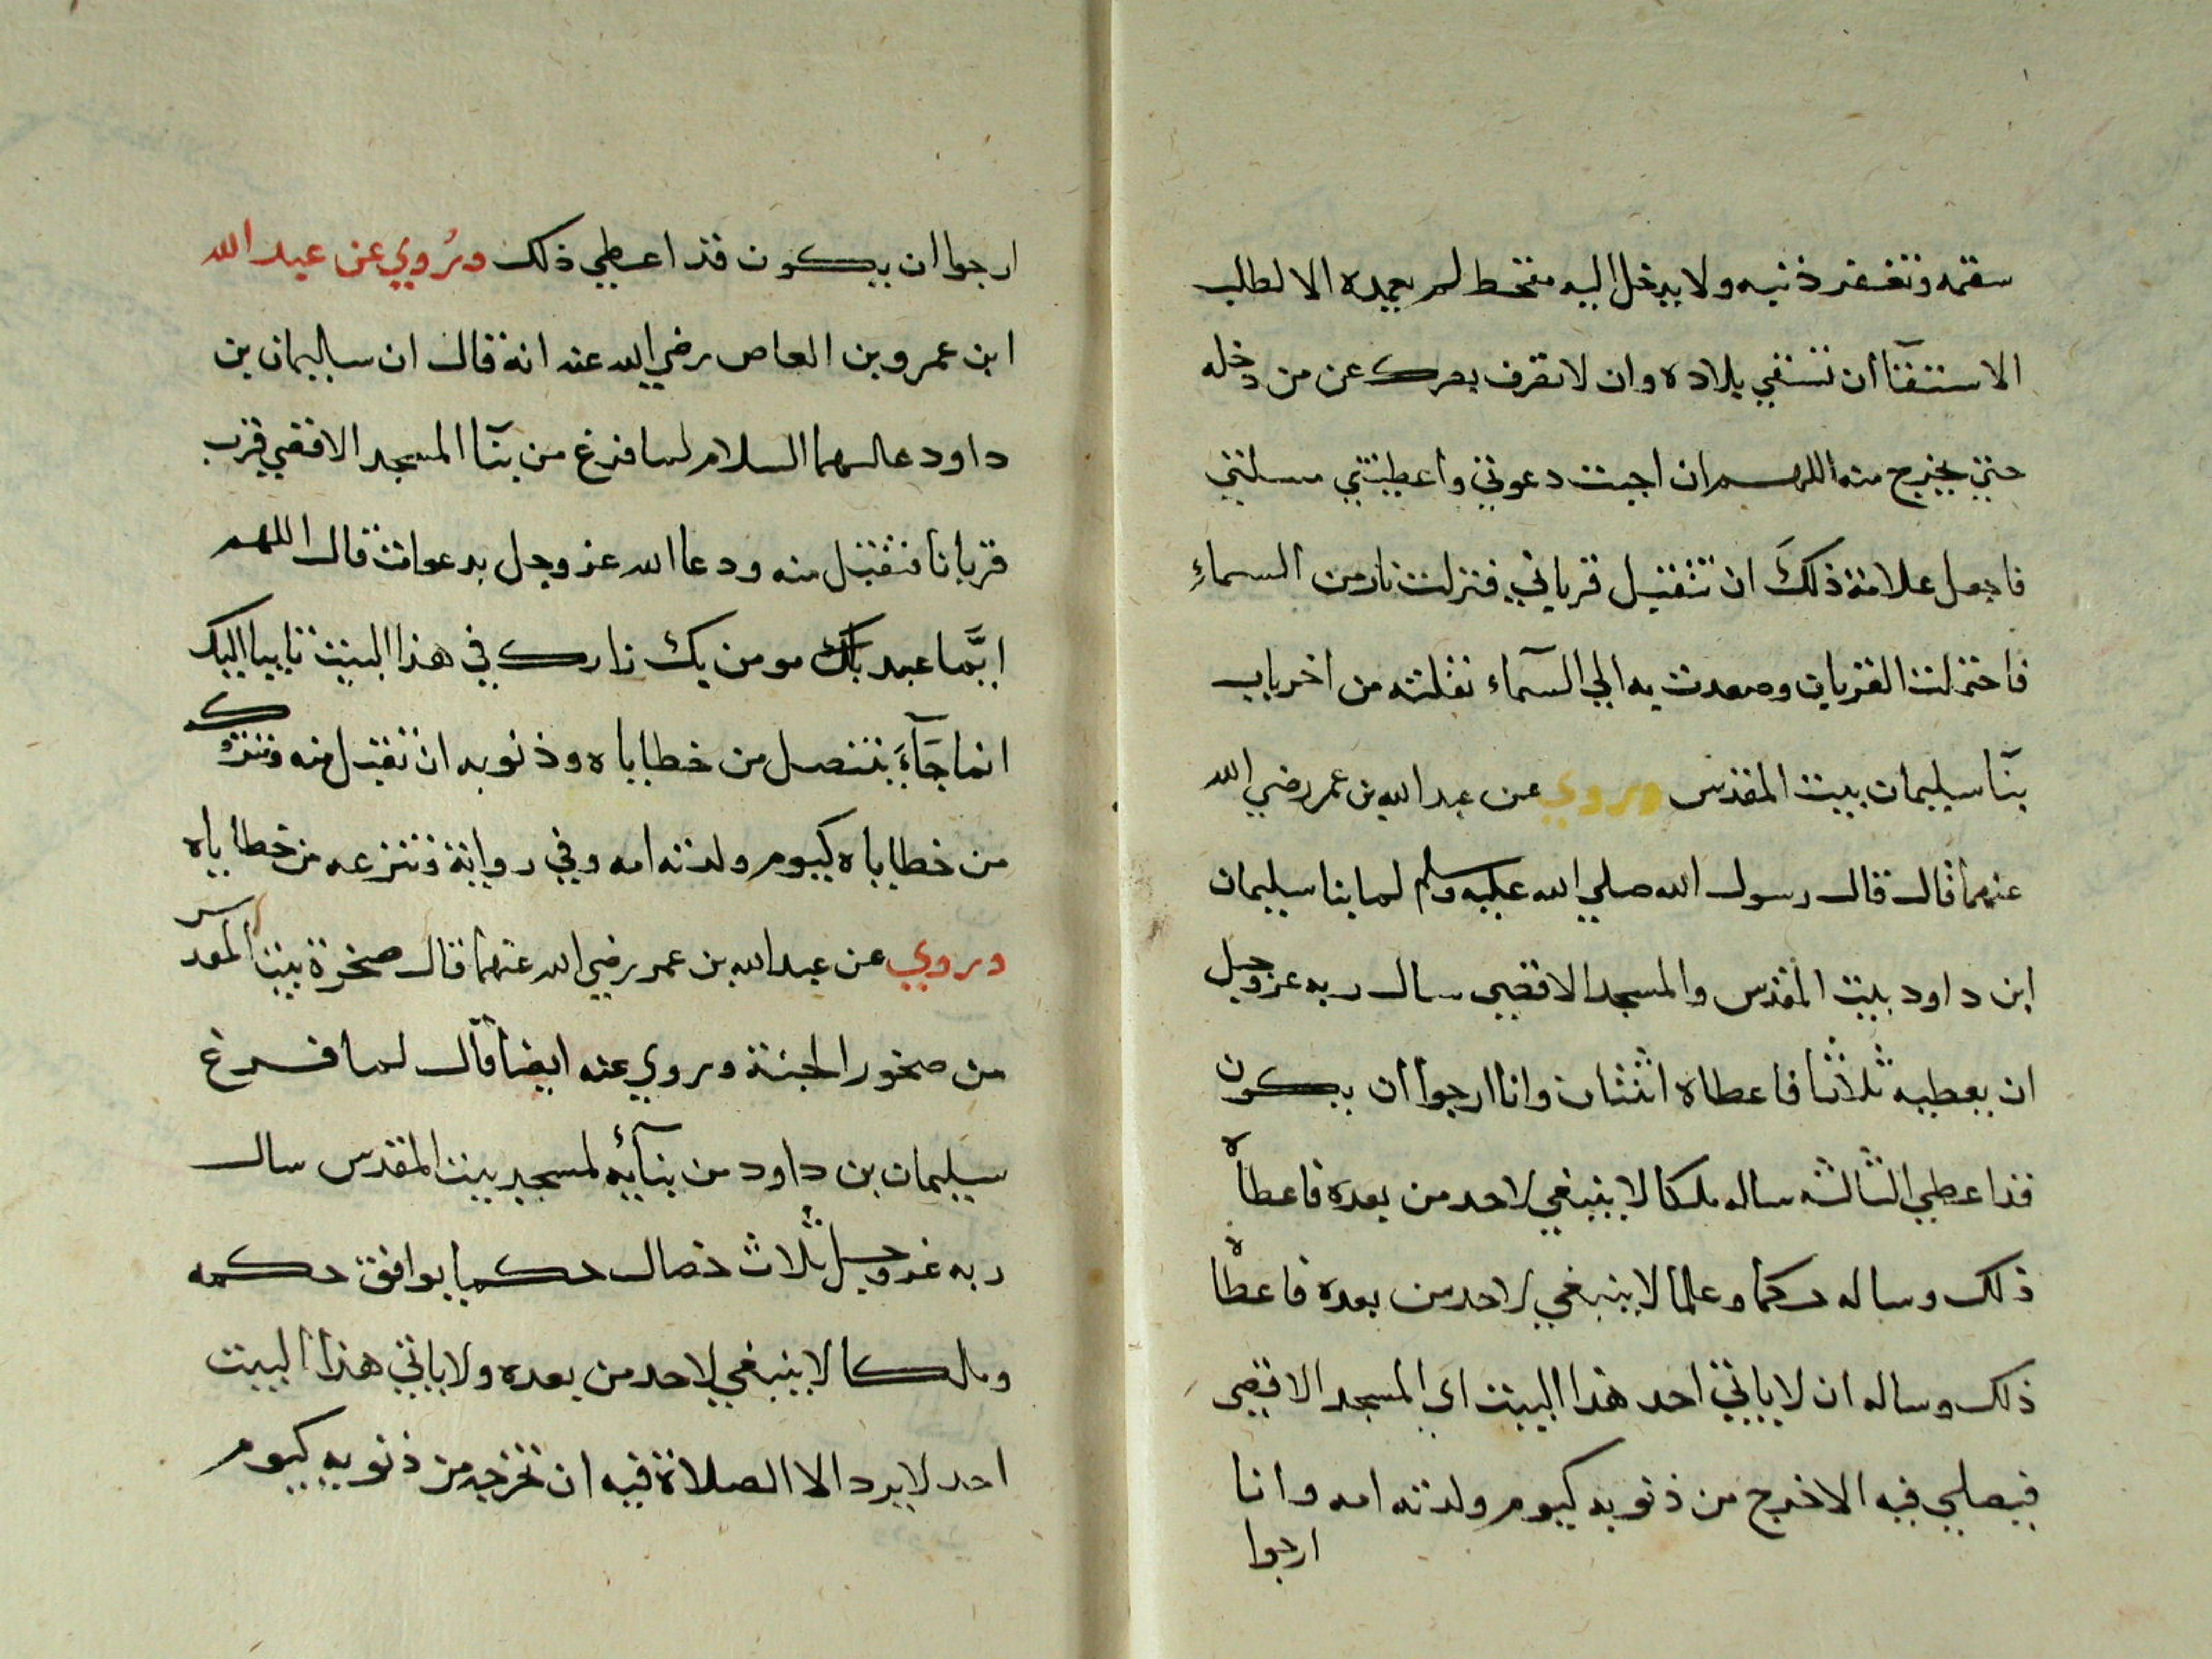 سقمه وتغفر ذنبه ولا يدخل اليه مقحط لم يعمده الا لطلب
الاستسقآ أن تسقي بلاده وان لا تصرف بصرك عن من دخله
حتي يخرج منه اللهم ان اجبت دعوتي واعطيتني مسلتي
فاجعل علامة ذلكَ ان تتقبل قرباني فنزلت نار من السماءِ
فاختزلت القربان وصعدت به الي السمآء نقلته من اخر باب
بنآ سليمان بيت المقدس وروي عن عبد الله بن عمر رضي الله
عنهما قال قال رسول الله صلي الله عليه وسلم لما بنا سليمان
ابن داود بيت المقدس والمسجد الاقصي سال ربه عز وجل
ان يعطيه ثلاثا فاعطاه اثنتان وانا ارجوا ان يكون
قد اعطي الثالثه ساله ملكا لا ينبغي لاحد من بعده فاعطاه
ذلك وساله حكما وعلما لا ينبغي لاحد من بعده فاعطاه
ذلك وساله ان لا ياتي احد هذا البيت اي المسجد الاقصي
فيصلي فيه الا خرج من ذنوبه كيوم ولدته امه وانا
ارجوا
ارجوا ان يكون قد اعطي ذلك ورُوي عن عبد الله
ابن عمرو بن العاص رضي الله عنه انه قال ان سليمان بن
داود عليهما السلام لما فرغ من بنآ المسجد الاقصي قرب
قربانا فتقبل منه ودعا الله عز وجل بدعوات قال اللهم
ايَّما عبد بك مومن يك زارك في هذا البيت تايبا اليك
انما جَآءَ يتنصل من خطاياه وذنوبه ان تقبل منه وتتركه
من خطاياه كيوم ولدته امه وفي رواية وتنزعه من خطاياه
وروي عن عبد الله بن عمر رضي الله عنهما قال صخرة بيت المقدس
من صخور الجنة وروي عنه ايضا قال لما فرغ
سليمان بن داود من بنآئه لمسجد بيت المقدس سال
ربه عز وجل ثلاث خصال حكما يوافق حكمه
وملكا لا ينبغي لاحد من بعده ولا ياتي هذا البيت
احد لا يرد الا الصلاة فيه ان تخرجه من ذنوبه كيوم